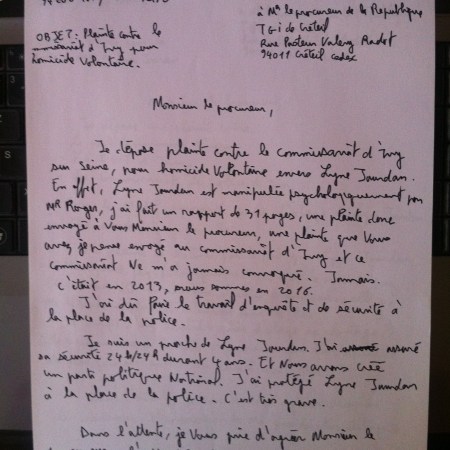 à Mr le procureur de la République
TGI de Créteil
Rue Pasteur Valery Radot
94011 Créteil cedex
OBJET: Plainte contre le
commissariat d'Ivry pour
homicide Volontaire.
Monsieur le procureur,
Je dépose plainte contre le commissariat d'Ivry
sur Seine, pour homicide Volontaire envers Lyne Jourdan.
En effet, Lyne Jourdan est manipulée psychologiquement par
MR Roger, j'ai fait un rapport de 31 pages, une plainte donc
envoyé à Vous Monsieur le procureur, une plainte que Vous
avez je pense envoyé au commissariat d'Ivry et ce
commissariat Ne m'a jamais convoqué. Jamais.
c'était en 2013, nous sommes en 2016.
J'ai dû faire le travail d'enquête et de sécurité à
la place de la police.
Je suis un proche de Lyne Jourdan. J'ai assuré
sa sécurité 24h/24h durant 4 ans. Et Nous avons créé
un parti politique National. J'ai protégé Lyne Jourdan
à la place de la police. C'est très grave.
Dans l'attente, je Vous prie d'agréer Monsieur le